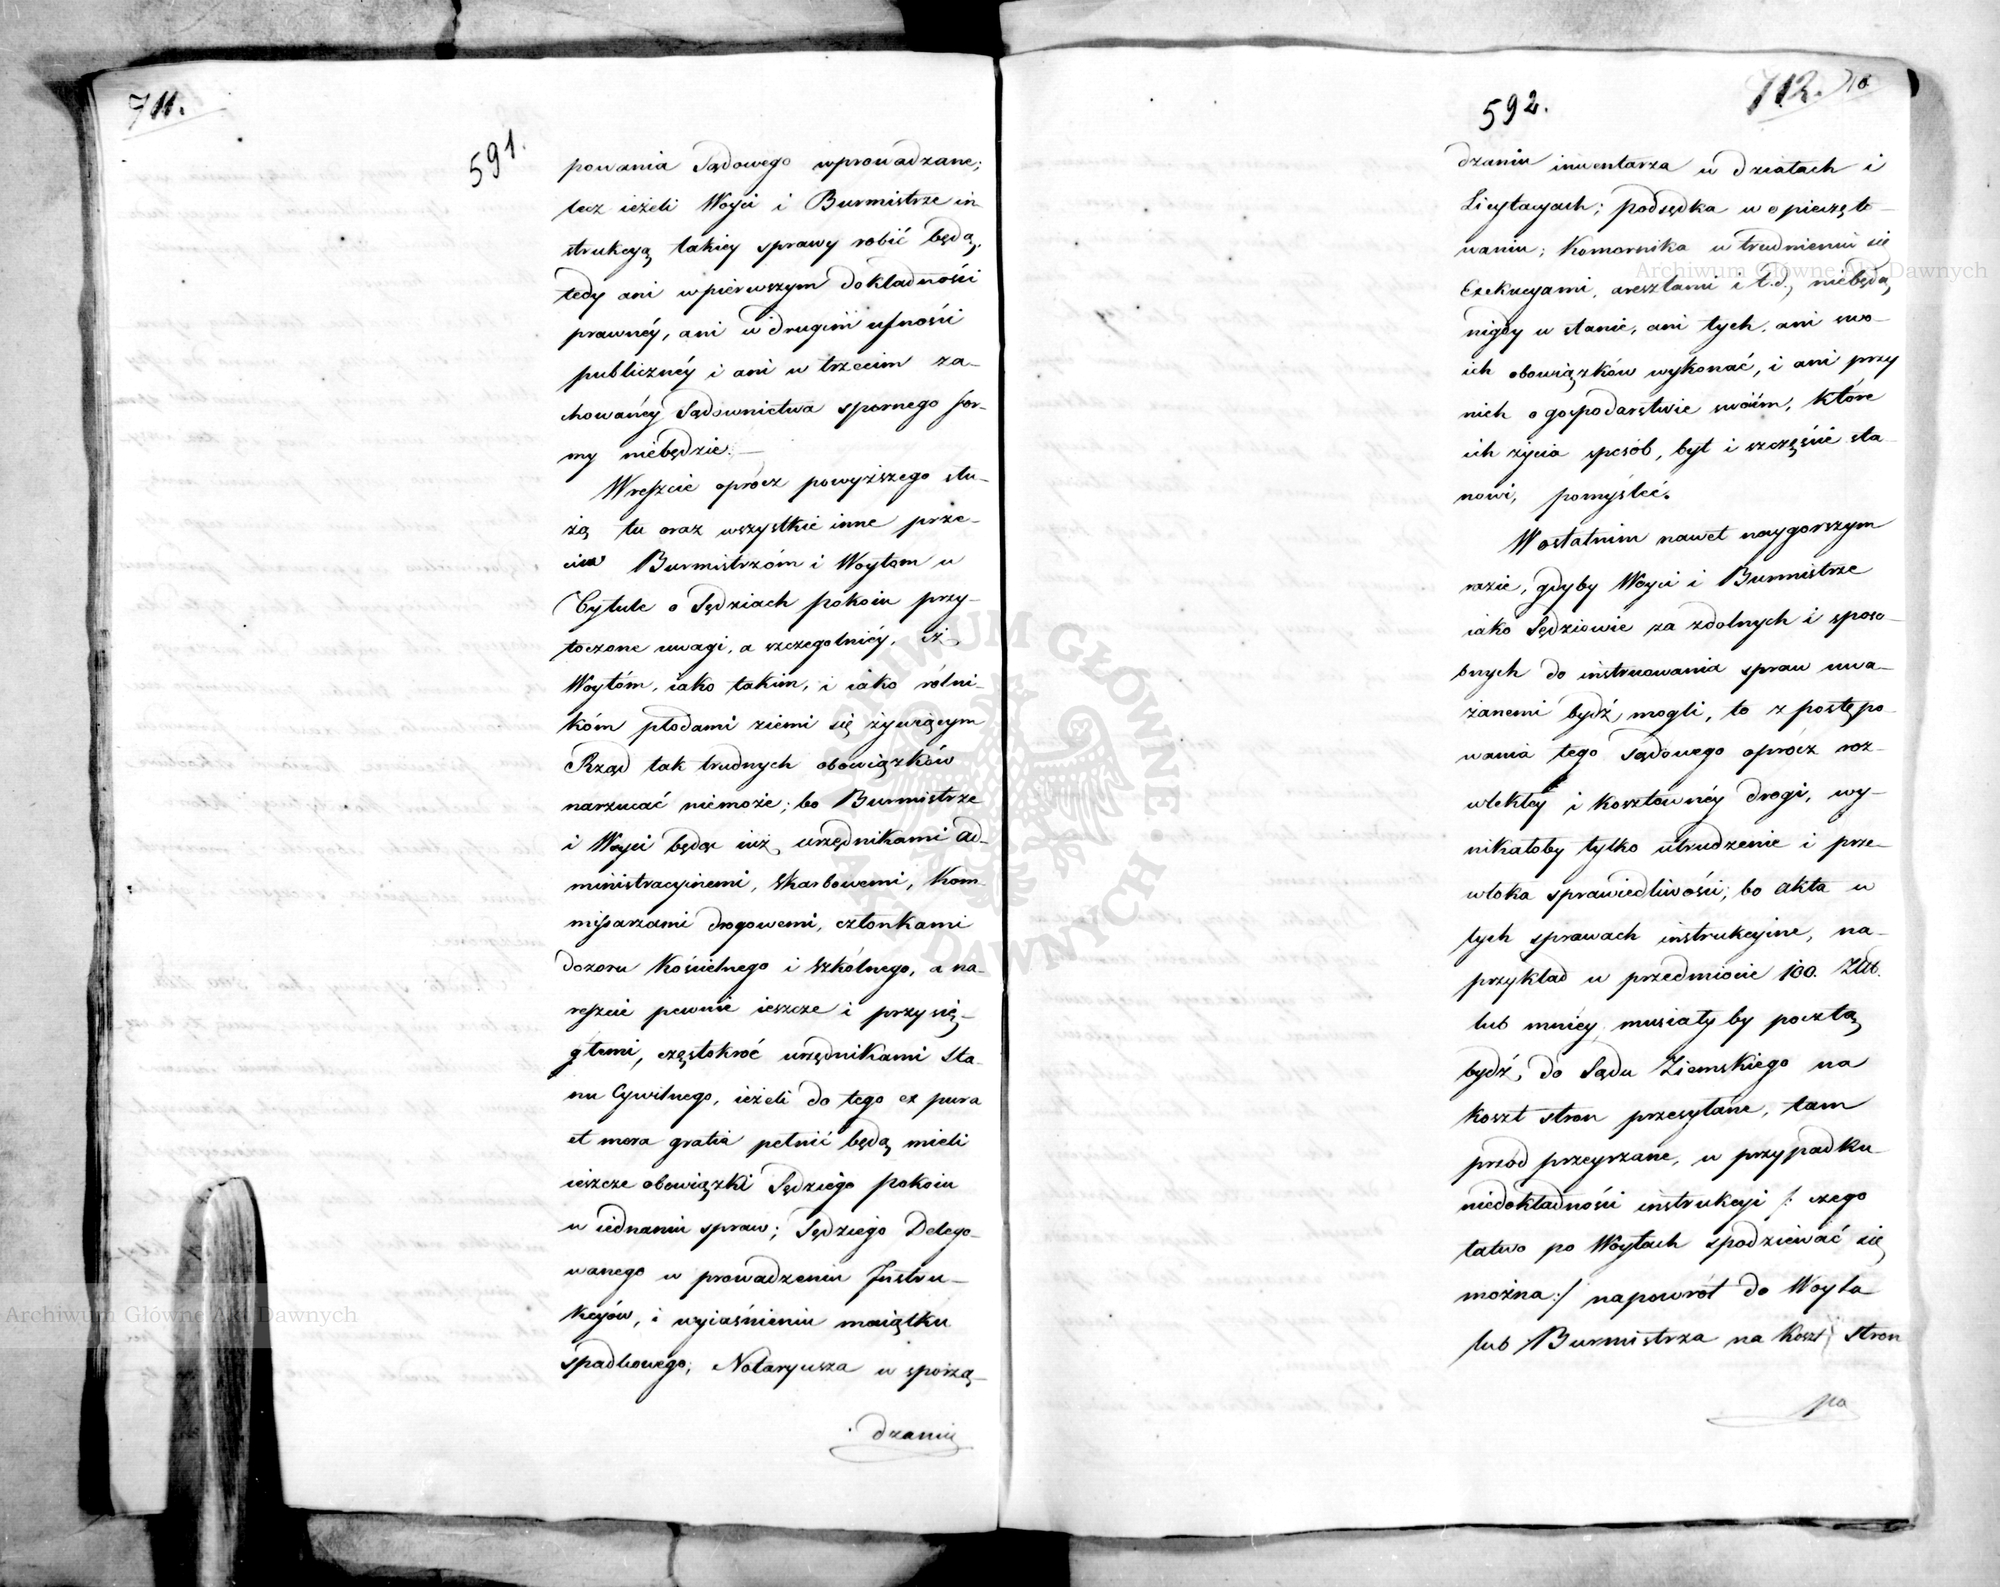 711.
591.
powania Sądowego wprowadzane;
lecz ieżeli Woyci i Burmistrze in
strukcyą takiey sprawy robić będą,
tedy ani w pierwszym dokładności
prawnéy, ani w drugim ufności
publicznéy i ani w trzecim za-
chowanéy Sądownictwa spornego for-
my niebędzie. —
Wreszcie oprócz powyższego słu-
żą tu oraz wszystkie inne prze-
ciw Burmistrzóm i Woytom w
Tytule o Sędziach pokoiu przy-
toczone uwagi, a szczegolniéy, iż
Woytóm, iako takim, i iako rólni-
kóm płodami ziemi się żywiącym
Rząd tak trudnych obowiązków
narzucać niemoże; bo Burmistrze
i Woyci będąc iuż urzędnikami ad-
ministracyinemi, skarbowemi, Kom-
missarzami drogowemi, członkami
dozoru Kościelnego i szkólnego, a na-
reszcie pewnie ieszcze i przysię-
głemi, częstokroć urzędnikami Sta-
nu Cywilnego, ieżeli do tego ex pura
et mera gratia pełnić będą mieli
ieszcze obowiązki Sędziego pokoiu
w iednaniu spraw; Sędziego Delego-
wanego w prowadzeniu Instru-
kcyów, i wyiaśnieniu maiątku
spadkowego; Notaryusza w sporzą-
dzaniu
592.
712.
dzaniu inwentarza w działach i
Licytacyach; podsędka w opieczęto-
waniu; Komornika w trudnieniu się
Exekucyami, aresztami i t.d., niebędą
nigdy w stanie, ani tych, ani swo-
ich obowiązków wykonać, i ani przy
nich o gospodarstwie swoim, które
ich życia sposób, byt i szczęście sta-
nowi, pomyśleć.
W ostatnim nawet naygorszym
razie, gdyby Woyci i Burmistrze
iako Sędziowie za zdolnych i sposo-
bnych do instruowania spraw uwa-
żanemi bydź mogli, to z postępo-
wania tego Sądowego oprócz roz-
wlekłéy i kosztownéy drogi, wy-
nikałoby tylko utrudzenie i prze-
włoka sprawiedliwości; bo akta w
tych sprawach instrukcyine, na-
przykład w przedmiocie 100. Złł.
lub mniéy, musiałyby pocztą
bydź, do Sądu Ziemskiego na
koszt stron przesyłane, tam
przód przeyrzane, w przypadku
niedokładności instrukcyi /: czego
łatwo po Woytach spodziewać się
można :/ napowrót do Woyta
lub Burmistrza na koszt stron
po
Archiwum Główne Akt Dawnych
Archiwum Główne Akt Dawnych
ARCHIWUM GŁÓWNE AKT DAWNYCH